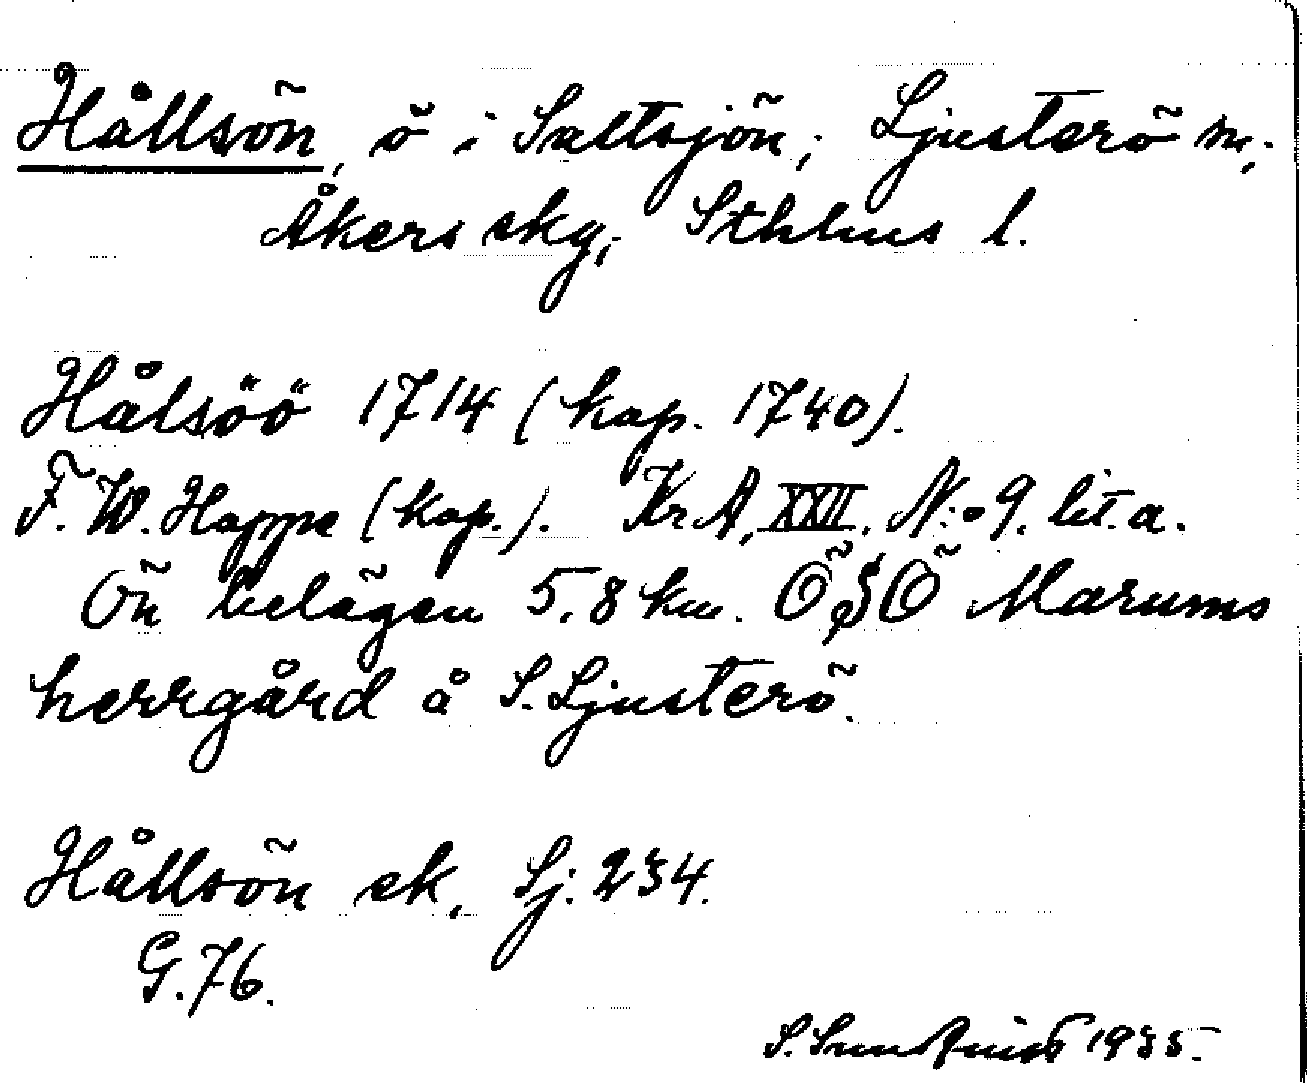 Hållsön, ö i Saltsjön, Ljusterö sn,
Åkers skg, Sthlms l.
Hålsöö 1714 (kop. 1740).
F. W. Hoppe (kop.). KrA, XXII. N:o 9. lit. a.
Ön belägen 5,8 km. ÖSÖ Marums
herrgård å S. Ljusterö.
Hållsön ek. Sj. 234.
G. 76.
S. Sundqvist 1935.